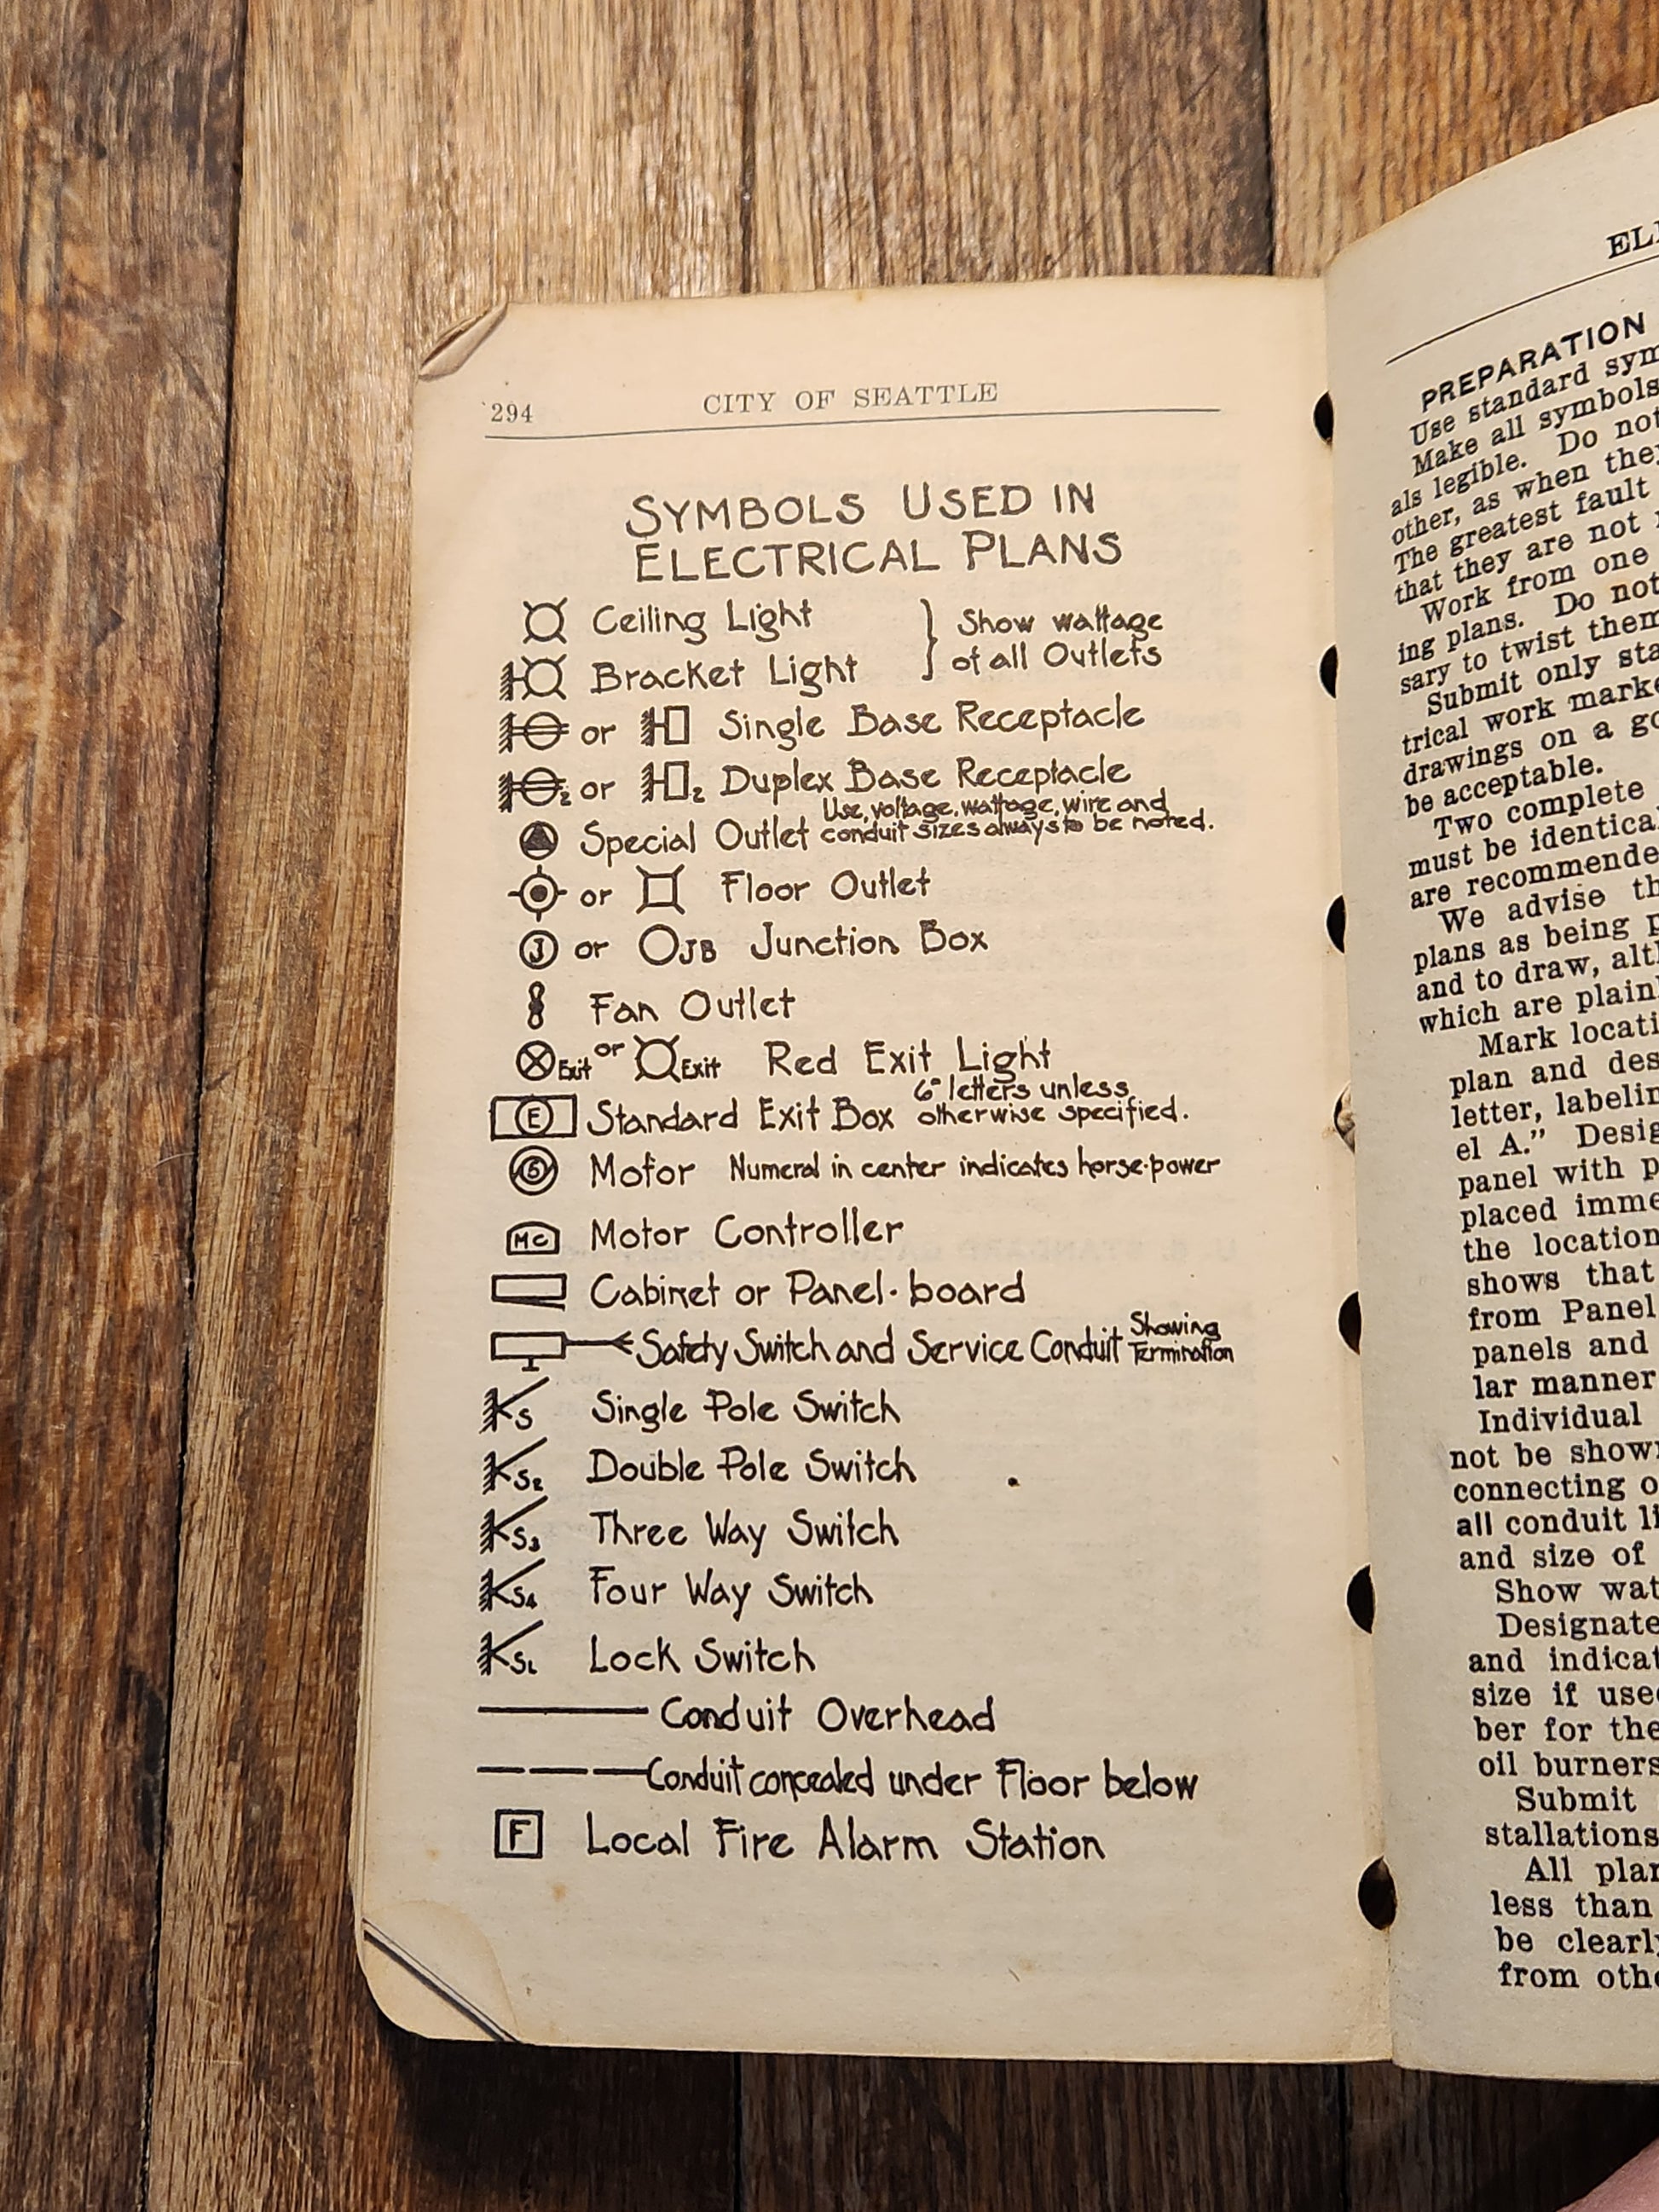 294 CITY OF SEATTLE
SYMBOLS USED IN
ELECTRICAL PLANS
Ceiling Light
Bracket Light
Show wattage
of all Outlets
or Single Base Receptacle
2 or 2 Duplex Base Receptacle
Special Outlet Use, voltage, wattage, wire and
conduit sizes always to be noted.
or Floor Outlet
J or JB Junction Box
Fan Outlet
Exit or Exit Red Exit Light
E Standard Exit Box 6" letters unless
otherwise specified.
5 Motor Numeral in center indicates horse-power
MC Motor Controller
Cabinet or Panel-board
Safety Switch and Service Conduit Showing
Termination
S Single Pole Switch
S2 Double Pole Switch
S3 Three Way Switch
S4 Four Way Switch
SL Lock Switch
Conduit Overhead
Conduit concealed under Floor below
F Local Fire Alarm Station
PREPARATION
Use standard
Make all symbols
als legible. Do not
other, as when they
The greatest fault
that they are not
Work from one
ing plans. Do not
sary to twist them
Submit only
trical work
drawings on a
be acceptable.
Two complete
must be
are
We advise
plans as being
and to draw,
which are
Mark
plan and
letter,
el A."
panel with
placed
the location
shows that
from Panel
panels and
lar manner
Individual
not be
connecting
all conduit
and size of
Show
Designate
and
size if
ber for the
oil burners
Submit
stallations
All
less than
be clearly
from